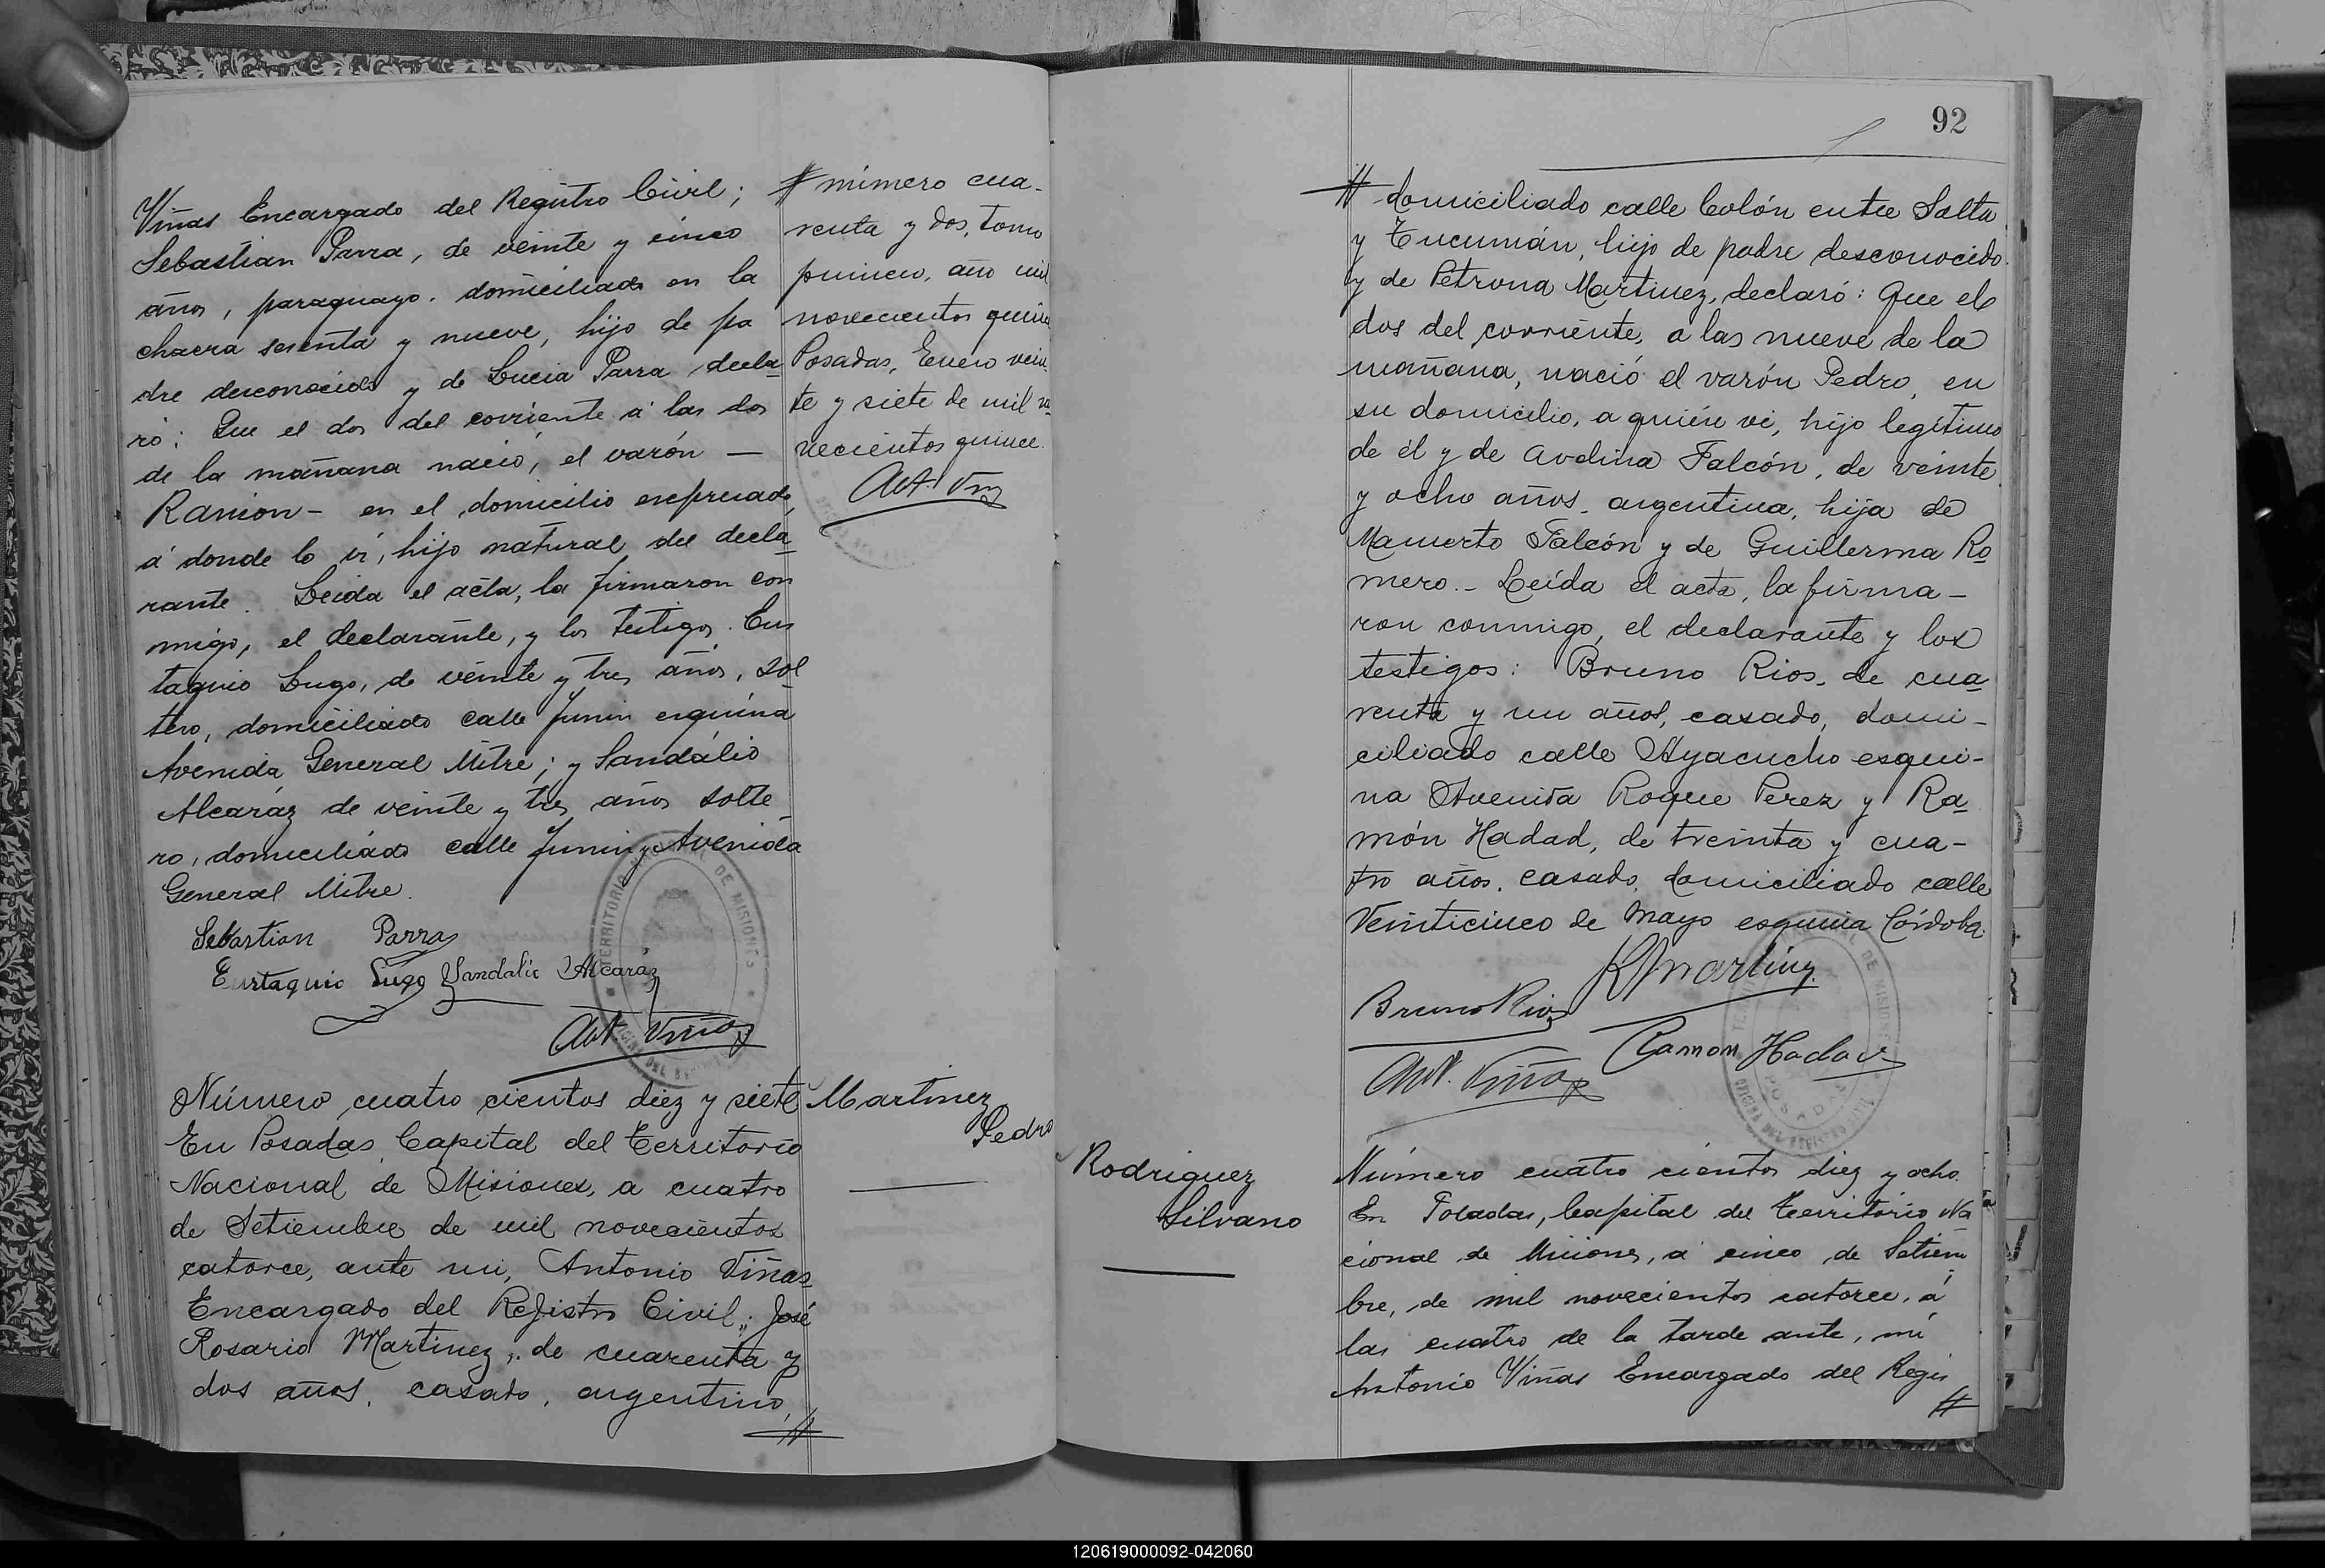 Viñas Encargado del Registro Civil;
Sebastian Parra, de veinte y cinco
años, paraguayo, domiciliado en la
chacra sesenta y nueve, hijo de pa
dre desconocido y de Lucia Parra decla
ró: Que el dos del corriente á las dos
de la mañana nació, el varón —
Ramon - en el domicilio expresado
á donde lo ví, hijo natural del decla
rante. Leida el acta, la firmaron con
migo, el declarante, y los testigos. Eus
taquio Lugo, de veinte y tres años, sol
tero, domiciliado calle Junin esquina
Avenida General Mitre; y Sandálio
Alcaráz de veinte y tres años solte
ro, domiciliado calle Junin y Avenida
General Mitre.
Sebastian Parra
Eustaquio Lugo Sandalio Alcaráz
Ant. Viñas
# número cua-
renta y dos, tomo
primero, año mil
novecientos quince
Posadas, Enero vein
te y siete de mil no
vecientos quince.
Ant. Viñas
Número cuatro cientos diez y siete
En Posadas, Capital del Territorio
Nacional de Misiones, a cuatro
de Setiembre de mil novecientos
catorce, ante mi, Antonio Viñas
Encargado del Registro Civil,, José
Rosario Martinez, de cuarenta y
dos años, casado, argentino,
#
Martinez
Pedro
92
# domiciliado calle Colón entre Salta
y Tucumán, hijo de padre desconocido
y de Petrona Martinez, declaró: Que el
dos del corriente, a las nueve de la
mañana, nació el varón Pedro, en
su domicilio, a quién vi, hijo legítimo
de él y de Avelina Falcón, de veinte
y ocho años, argentina, hija de
Mamerto Falcón y de Guillerma Ro
mero.- Leída el acta, la firma-
ron conmigo, el declarante y los
testigos: Bruno Rios, de cua
renta y un años, casado, domi-
ciliado calle Ayacucho esqui-
na Avenida Roque Perez y Ra
món Hadad, de treinta y cua-
tro años, casado, domiciliado calle
Veinticinco de Mayo esquina Córdoba.
R Martinez
Bruno Rios
Ramon Hadad
Ant. Viñas
Rodriguez
Silvano
Número cuatro cientos diez y ocho.
En Posadas, Capital del Territorio Na
cional de Misiones, á cinco de Setiem
bre, de mil novecientos catorce, á
las cuatro de la tarde ante, mi
Antonio Viñas Encargado del Regis
#
120619000092-042060